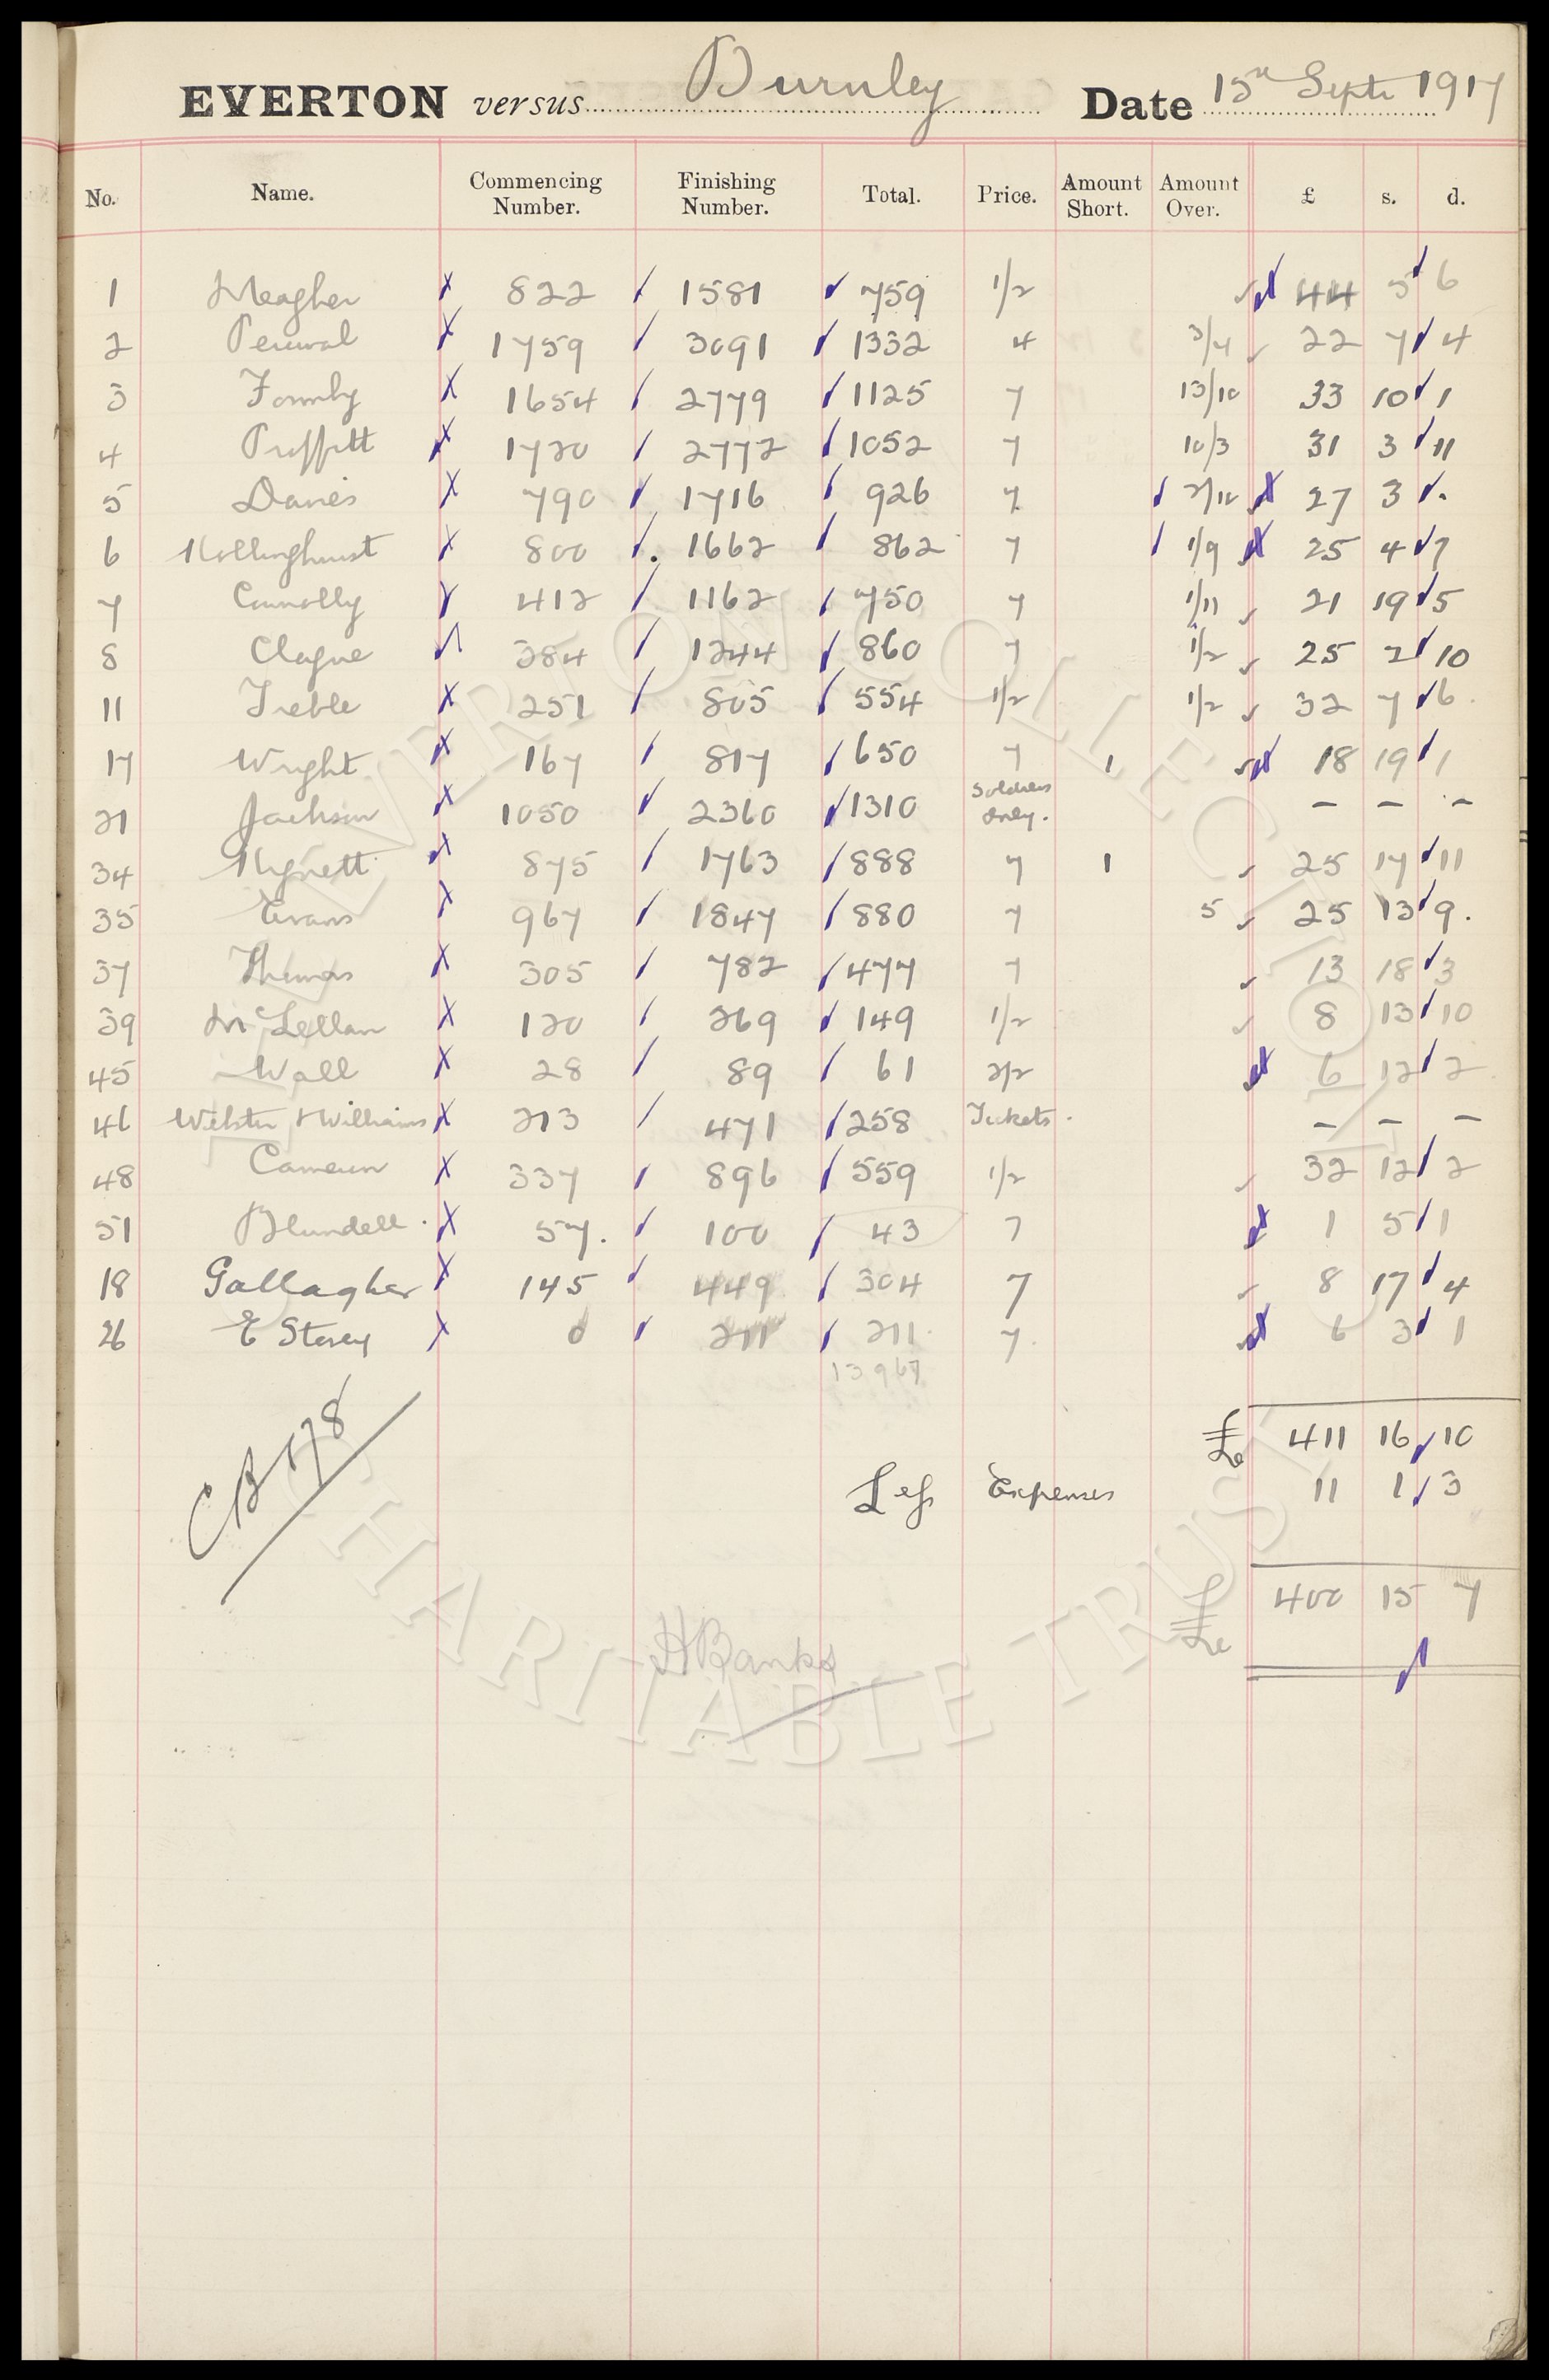 EVERTON versus Burnley Date 15th Septr 1917
No. Name. Commencing Number. Finishing Number. Total. Price. Amount Short. Amount Over. £ s. d.
1 Meagher 822 1581 759 1/2 44 5 6
2 Percival 1759 3091 1332 4 3/4 22 7 4
3 Formby 1654 2779 1125 7 13/10 33 10 1
4 Proffitt 1720 2772 1052 7 10/3 31 3 11
5 Davies 790 1716 926 7 2/10 27 3 .
6 Hollinghurst 800 1662 862 7 1/9 25 4 7
7 Connolly 412 1162 750 7 1/11 21 19 5
8 Clague 384 1244 860 7 1/2 25 2 10
11 Treble 251 805 554 1/2 1/2 32 7 6
17 Wright 167 817 650 7 1 18 19 1
21 Jackson 1050 2360 1310 Soldiers only. – – –
34 Hignett 875 1763 888 7 1 25 17 11
35 Evans 967 1847 880 7 5 25 13 9.
37 Thomas 305 782 477 7 13 18 3
39 McLellan 120 269 149 1/2 8 13 10
45 Wall 28 89 61 2/2 6 12 2
46 Webster & Williams 213 471 258 Tickets. – – –
48 Cameron 337 896 559 1/2 32 12 2
51 Blundell. 57. 100 43 7 1 5 1
18 Gallagher 145 449 304 7 8 17 4
26 E Storey 0 211 211 7 6 3 1
13967
£ 411 16 10
CB 178
Less Expenses 11 1 3
£ 400 15 7
HBanks
EVERTON COLLECTION
CHARITABLE TRUST